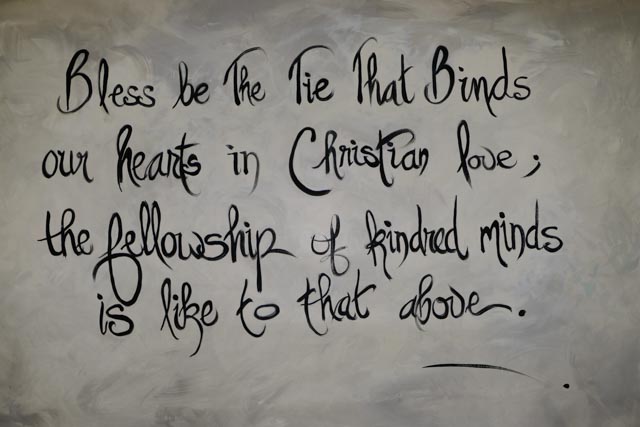 Bless be The Tie That Binds
our hearts in Christian love;
the fellowship of kindred minds
is like to that above.